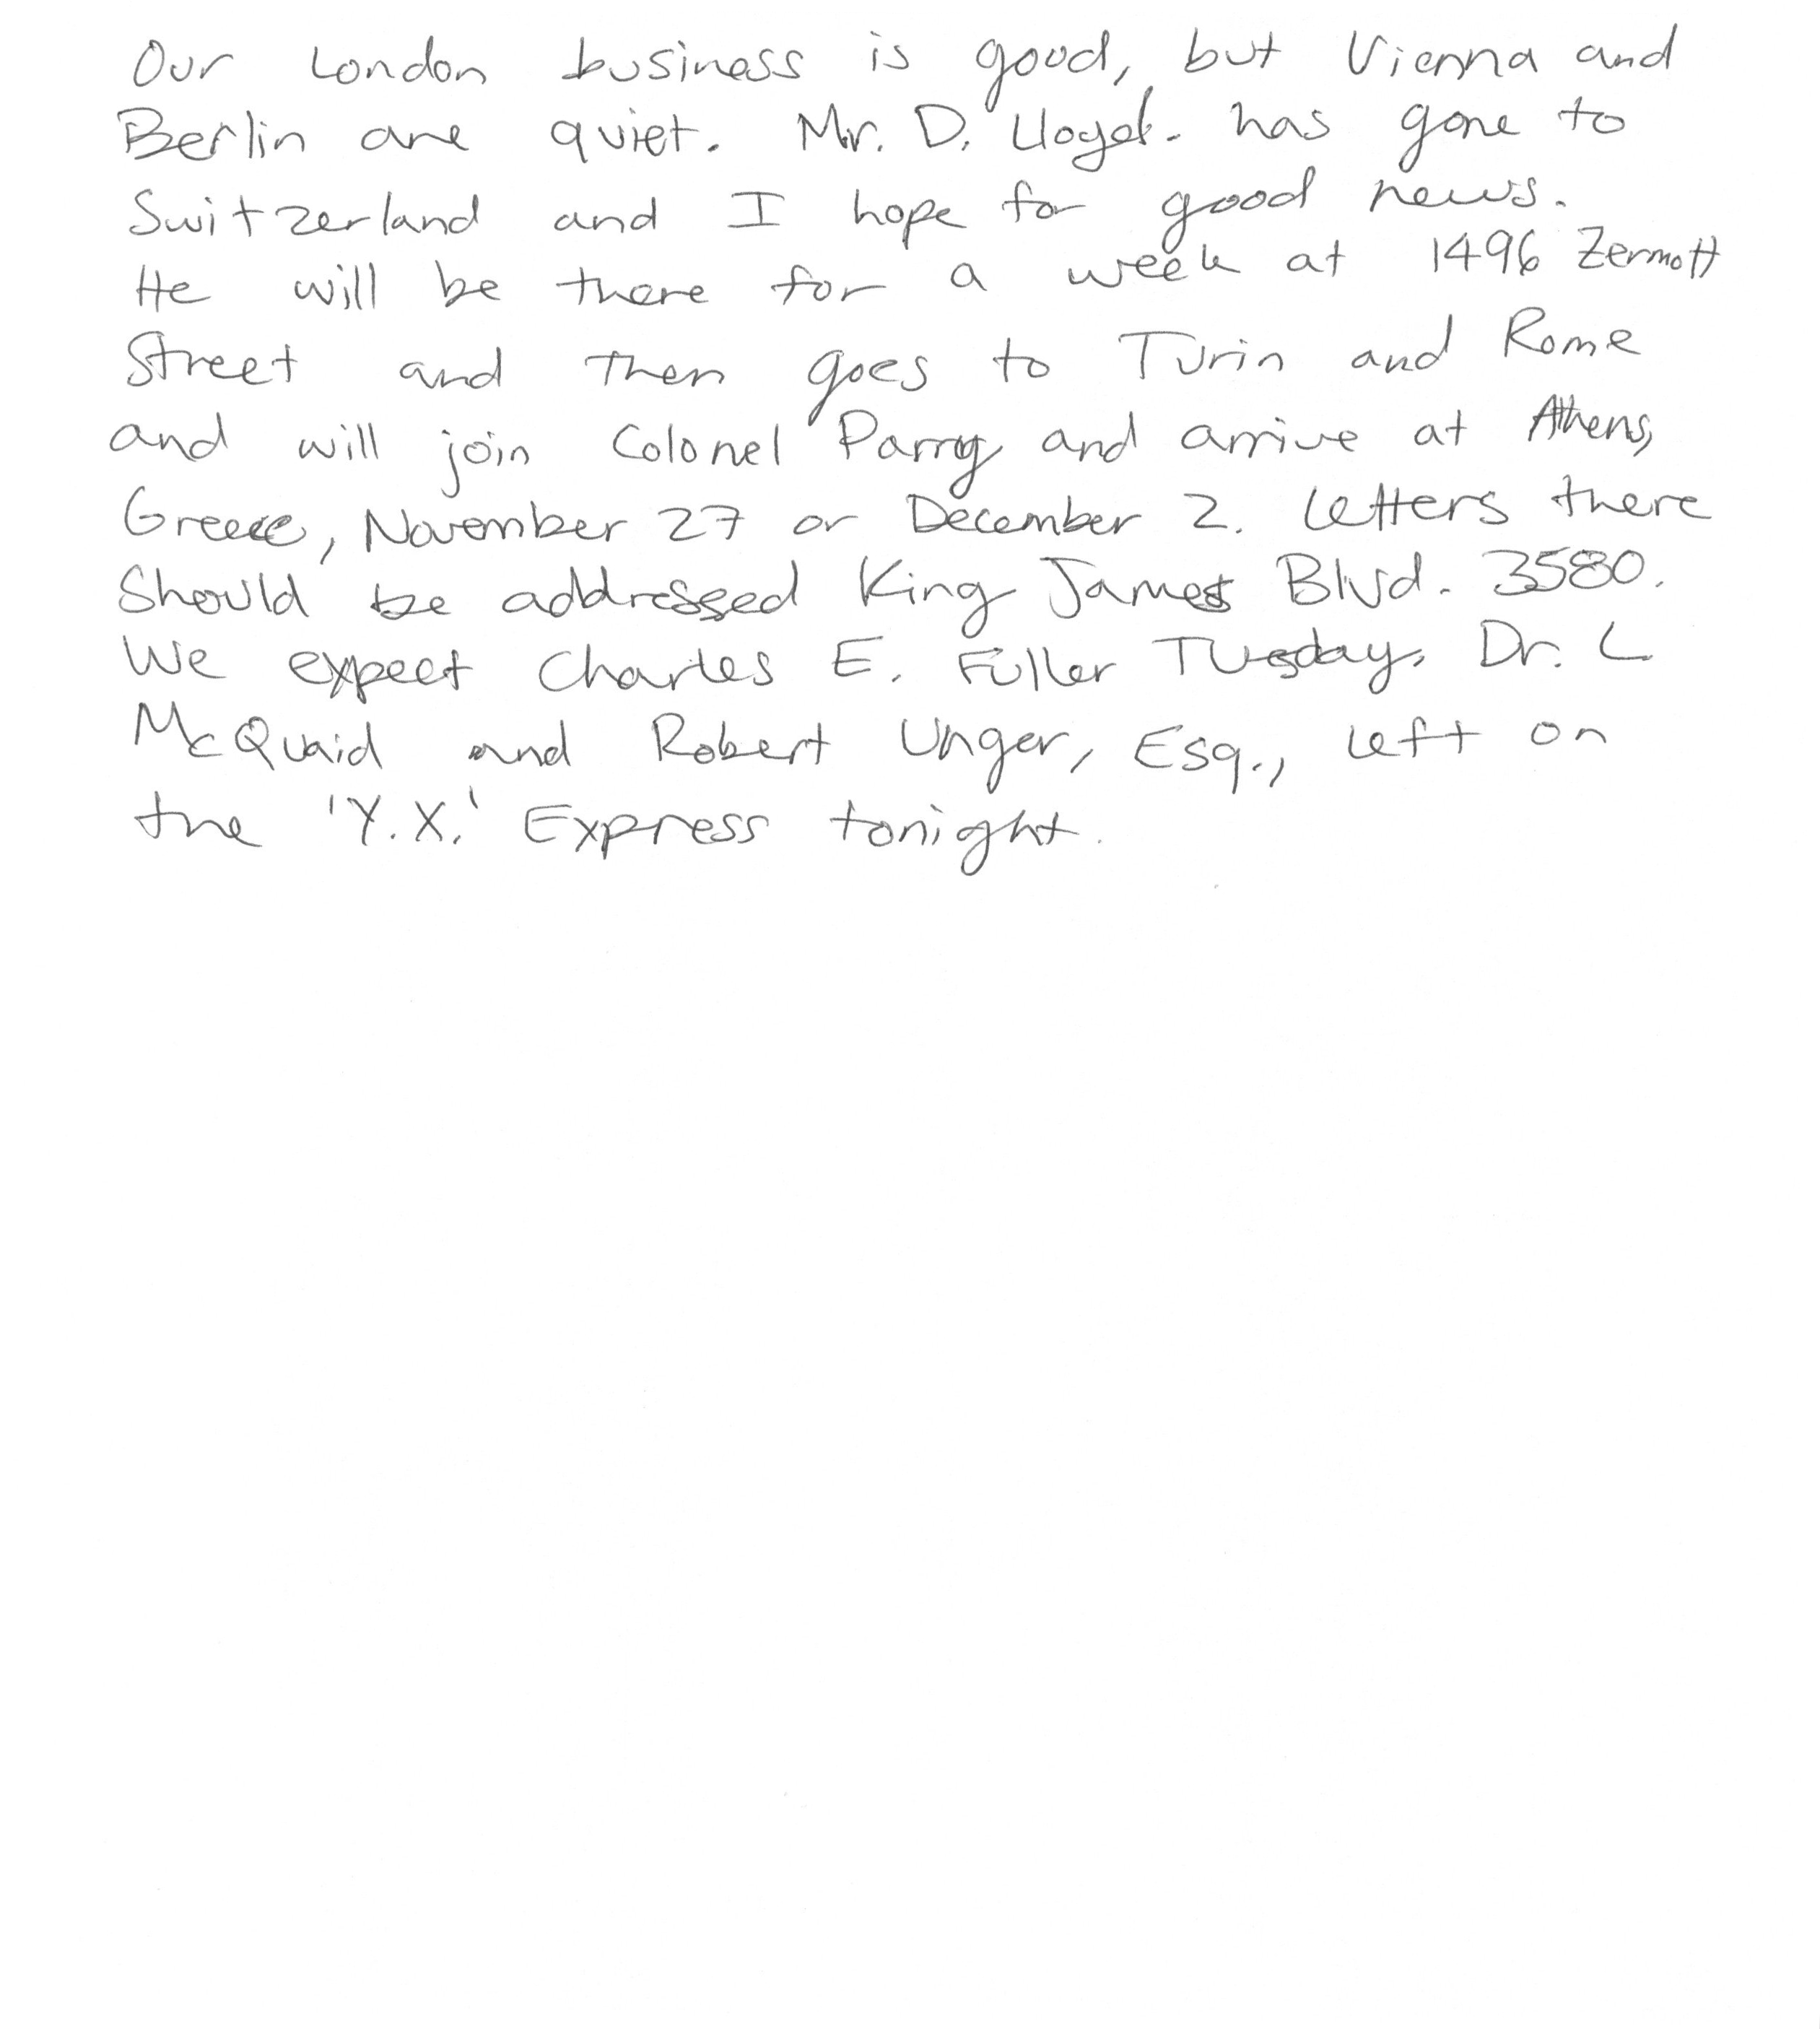 Our London business is good, but Vienna and
Berlin are quiet. Mr. D. Lloyd. has gone to
Switzerland and I hope for good news.
He will be there for a week at 1496 Zermott
Street and then goes to Turin and Rome
and will join Colonel Parry and arrive at Athens,
Greece, November 27 or December 2. Letters there
Should be addressed King James Blvd. 3580.
We expect Charles E. Fuller Tuesday. Dr. L
McQuaid and Robert Unger, Esq., left on
the 'Y.X.' Express tonight.